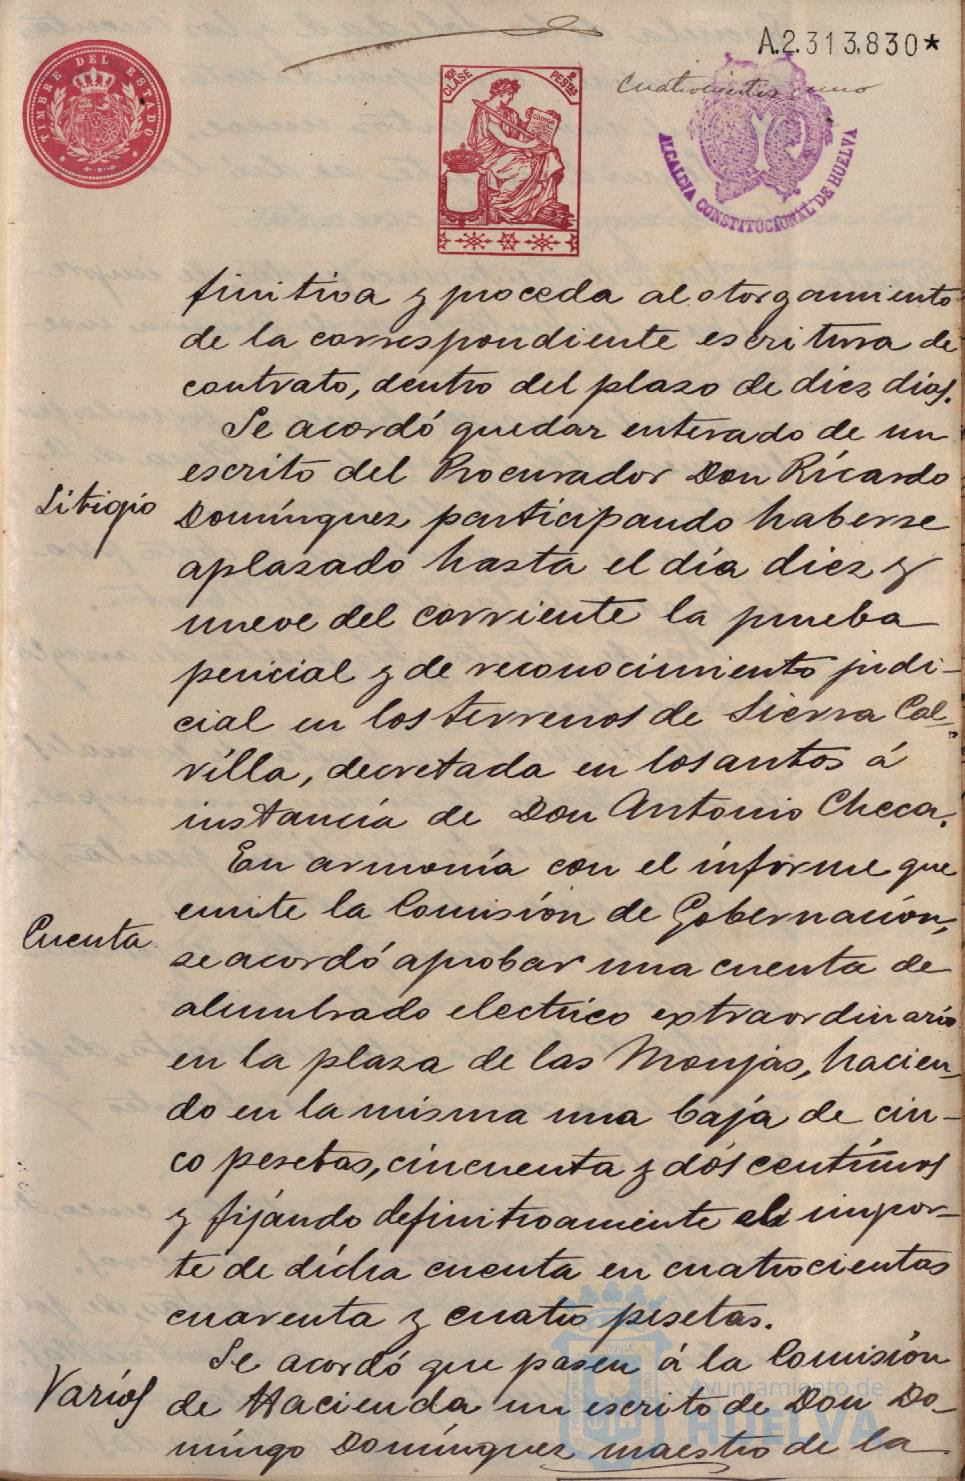 A.2.313,830*
TIMBRE DEL ESTADO
10ª CLASE 2 PESETAS
CODIGO
Cuatrocientos uno
ALCALDIA CONSTITUCIONAL DE HUELVA
finitiva y proceda al otorgamiento
de la correspondiente escritura de
contrato, dentro del plazo de diez dias.
Se acordó quedar enterado de un
escrito del Procurador Don Ricardo
Litigio
Domínguez participando haberse
aplazado hasta el día diez y
nueve del corriente la prueba
pericial y de reconocimiento judi-
cial en los terrenos de Sierra Cal-
villa, decretada en los autos á
instancia de Don Antonio Checa.
En armonía con el informe que
emite la Comisión de Gobernación,
Cuenta
se acordó aprobar una cuenta de
alumbrado electrico extraordinario
en la plaza de las Monjas, hacien-
do en la misma una baja de cin-
co pesetas, cincuenta y dós centímos
y fijando definitivamente el impor-
te de dicha cuenta en cuatrocientas
cuarenta y cuatro pesetas.
Se acordó que pasen á la Comisión
Varios
de Hacienda un escrito de Don Do-
mingo Domínguez maestro de la
Ayuntamiento de
HUELVA